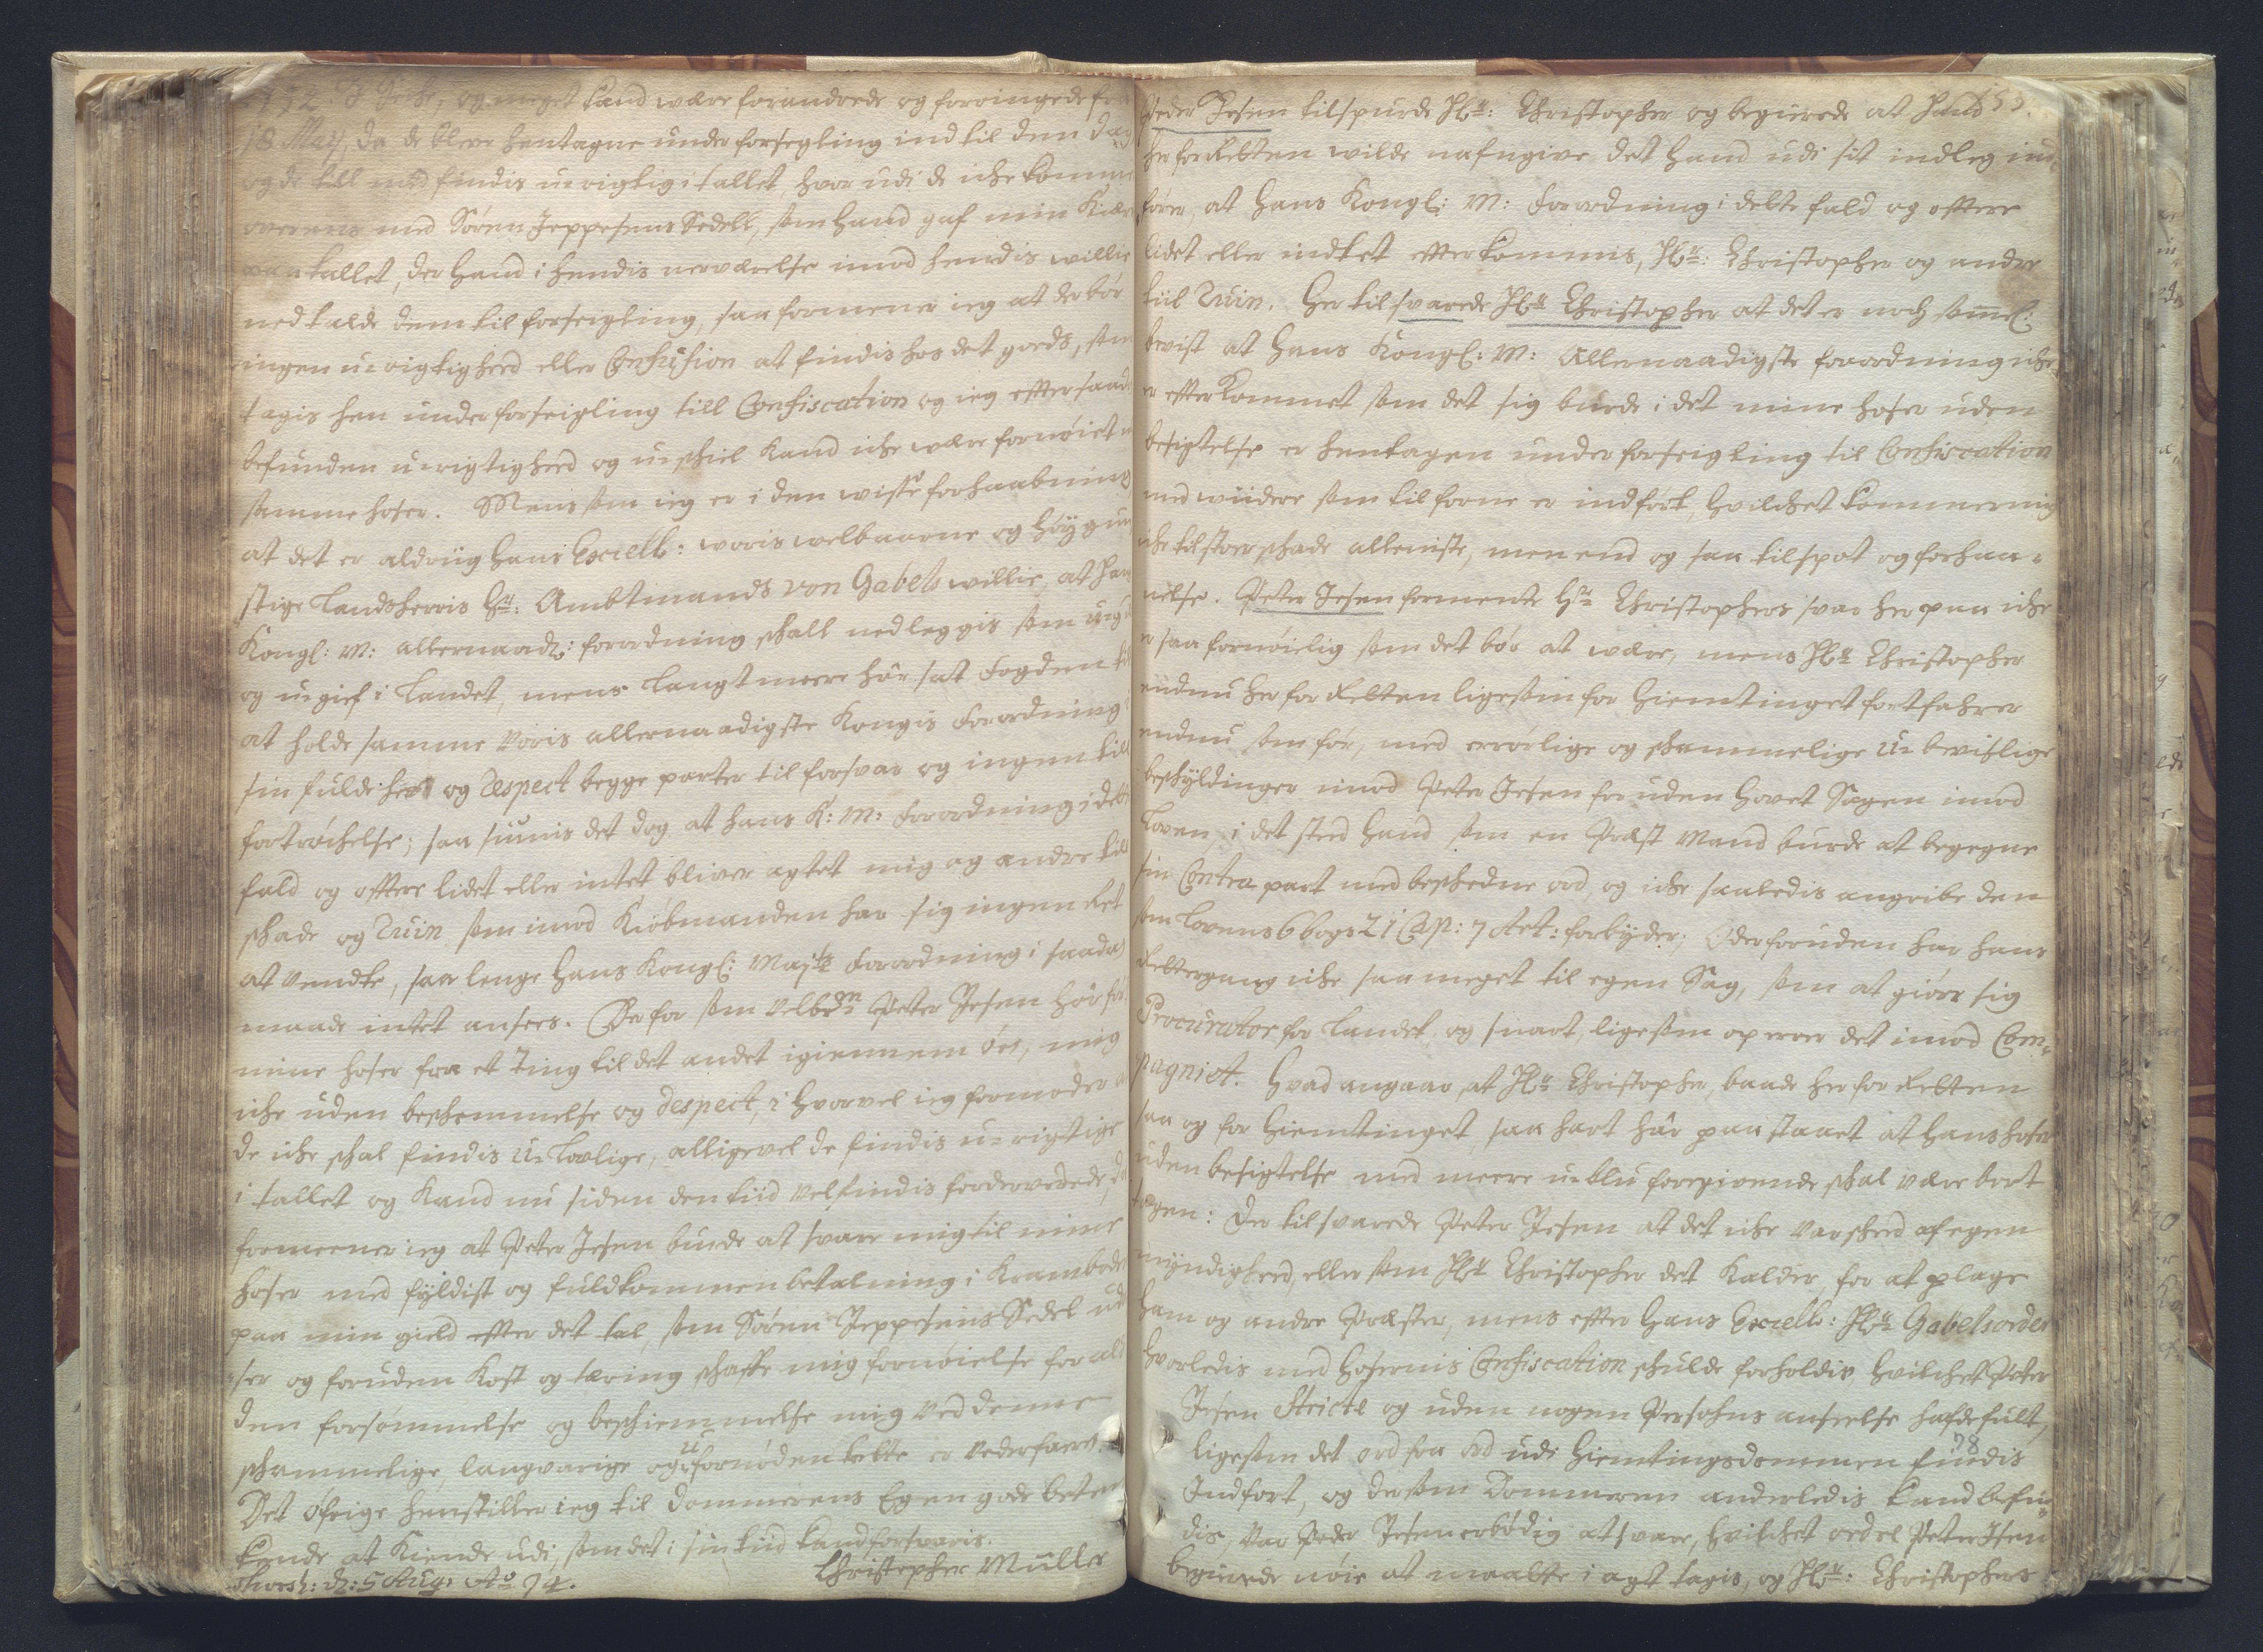 og meget kand være forandrede og foringede fra
18 Maÿ, da de bleve hentagne under forsegling ind til den dag
og de till med findis u-rigtig i tallet, hvor udi de iche komme
overens med Sören Jeppesens Sedell, som hand gaf min Kiær
paa tallet, der hand i hendis nerværelse imod hendis willie
ned talde dem til forseigling, saa formener ieg at der bör
ingen u-rigtighed eller Confusion at findis hos det gods, som
tagis hen under forseigling till Confiscation og ieg effter saad
befunden u-rigtighed og u-schiel kand iche være fornöiet m
samme hoser. Mens som ieg er i den wisse forhaabning
at det er aldriig hans Excell: woris welbaarne og höÿ gun
stige Landsherris Hr: Ambtmands von Gabels willie, at Hans
Kongl: M: allernaad: forordning schall nedleggis som ung
og u-gief i Landet, mens langt meere har sat Fogden til
at holde samme voris allernaadigste Kongis Forordning i
sin fulde hefd og Respect begge parter til forsvar og ingen till
fortröchelse; saa siunis det dog at hans K: M: Forordning i dette
fald og offtere lidet eller intet bliver agtet mig og andre till
schade og Ruin som imod Kiöbmanden har sig ingen Ret
at vendte, saa lenge hans Kongl: Majts Forordning i saadan
maade intet ansees. Derfor som velbrn Peter Jesen har för
mine hoser fra et Ting til det andet igiennem öer, mig
iche uden beschemmelse og despect, i hvorvel ieg formoder at
de iche schal findis u-lovlige, alligevel de findis u-rigtige
i tallet og kand nu siden den tiid vel findis forderverede, da
formeener ieg at Peter Jesen burde at svare mig til mine
hoser med fÿldist og fuldkommen betalning i Kramboden
paa min gield effter det tal, som Sören Jeppesens Sedel ud
ser og foruden Kost og tæring schaffe mig fornöielse for all
den forsömmelse og beschiemmelse mig ved denne
schammelige, langvarige og ufornöden trette er vederfaret.
Det öfrige henstiller ieg til Dommerens Egen gode beten
kende at kiende udi, som det i sin tiid kand forsvaris.
Thorsh: d: 5 Aug: Ao 94. Christopher Müller
Peder Jesen tilspurde Hr: Christopher og begierede at hand 153.
her for Retten wilde nafngive det hand udi sit indleg ind
förer, at hans Kongl: M: Forordning i dette fald og offtere
lidet eller indtet effterkommis, Hr: Christopher og andre
till Ruin. Her til svarede Hr Christopher at det er noch somel:
bevist at hans Kongl: M: Allernaadigste forordning iche
er effterkommet som det sig burde i det mine hoser uden
besigtelse er hentagen under forseigling til Confiscation
med wiidere som tilforne er indfört, hvilchet kommer mig
iche til stoer schade alleniste, men end og saa til spot og forhaa-
nelse. Peter Jesen formente Hr Christophers svar her paa iche
er saa fornöielig som det bör at være, mens Hr Christopher
endnu her for Retten ligesom for Hiemtinget fortfahrer
endnu som för, med ærrörlige og schammelige u-bevislige
beschÿldinger imod Peter Jesen foruden hovet Sagen imod
Loven, i det sted hand som en Præst Mand burde at begegne
sin Contra part med beschedne ord, og iche saaledis angribe den
som Lovens 6 bogs 21 Cap: 7 Art: forbÿder; Der foruden har hans
Rettergang iche saa meget til egen Sag, som at giöre sig
Procurator for Landet og snart, ligesom operer det imod Com-
pagniet. Hvad angaar, at Hr Christopher, baade her for Retten
saa og for Hiemtinget saa hart har paastaaet at hans hoser
uden besigtelse med meere u-blu foregivende schal være bort
tagen: Der til svarede Peter Jesen at det iche var scheed af egen
mÿndighed, eller som Hr Christopher det kalder, for at plage
ham og andre Præster, mens effter hans Excell: Hr Gabels order
hvorledis med hosernis Confiscation schulde forholdis, hvilchet Peter
Jesen Stricte og uden nogen Persohns anseelse hafde fult,
ligesom det ord fra ord udi Hiemtingsdommen findis
78
Indfort, og dersom Dommeren anderledis kand befin-
dis, var Peder Jesen erbödig at svare, hvilchet ordel Peter Jesen
begierede nöie at maatte i agt tagis, og Hr: Christophers